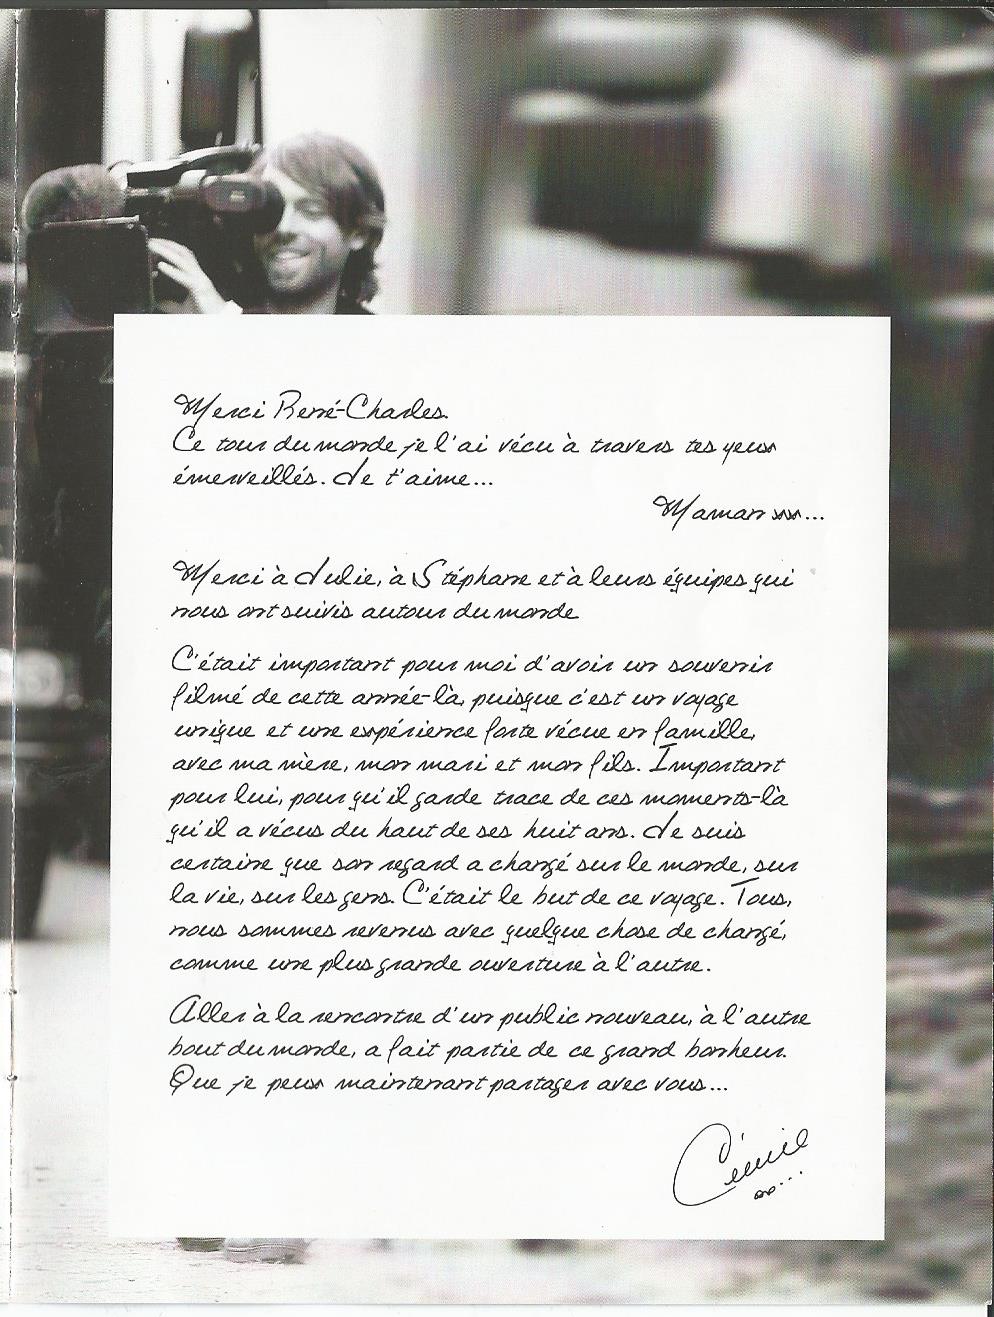 Merci René-Charles.
Ce tour du monde je l'ai vécu à travers tes yeux
émerveillés. Je t'aime...
Maman xxx...
Merci à Julie, à Stéphane et à leurs équipes qui
nous ont suivis autour du monde
C'était important pour moi d'avoir un souvenir
filmé de cette année-là, puisque c'est un voyage
unique et une expérience forte vécue en famille,
avec ma mère, mon mari et mon fils. Important
pour lui, pour qu'il garde trace de ces moments-là
qu'il a vécus du haut de ses huit ans. Je suis
certaine que son regard a changé sur le monde, sur
la vie, sur les gens. C'était le but de ce voyage. Tous,
nous sommes revenus avec quelque chose de changé,
comme une plus grande ouverture à l'autre.
Aller à la rencontre d'un public nouveau, à l'autre
bout du monde, a fait partie de ce grand bonheur.
Que je peux maintenant partager avec vous...
Céline
xx...